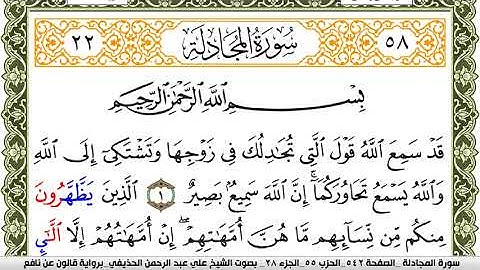 ٢٢ سُورَةُ المُجَادلَة ٥٨
بِسْمِ اللَّهِ الرَّحْمَٰنِ الرَّحِيمِ
قَدْ سَمِعَ اَللَّهُ قَوْلَ اَلَّتِي تُجَٰدِلُكَ فِي زَوْجِهَا وَتَشْتَكِي إِلَى اَللَّهِ
وَاللَّهُ يَسْمَعُ تَحَاوُرَكُمَا إِنَّ اَللَّهَ سَمِيعٌ بَصِيرٌ ١ اَلَّذِينَ يَظَّهَّرُونَ
مِنكُم مِّن نِّسَآئِهِم مَّا هُنَّ أُمَّهَٰتِهِمْ إِنْ أُمَّهَٰتُهُمْ إِلَّا اَلَّٰٓئِ
سورة المجادلة_ الصفحة ٥٤٢_ الحزب ٥٥_ الجزء ٢٨_ بصوت الشيخ علي عبد الرحمن الحذيفي_ برواية قالون عن نافع